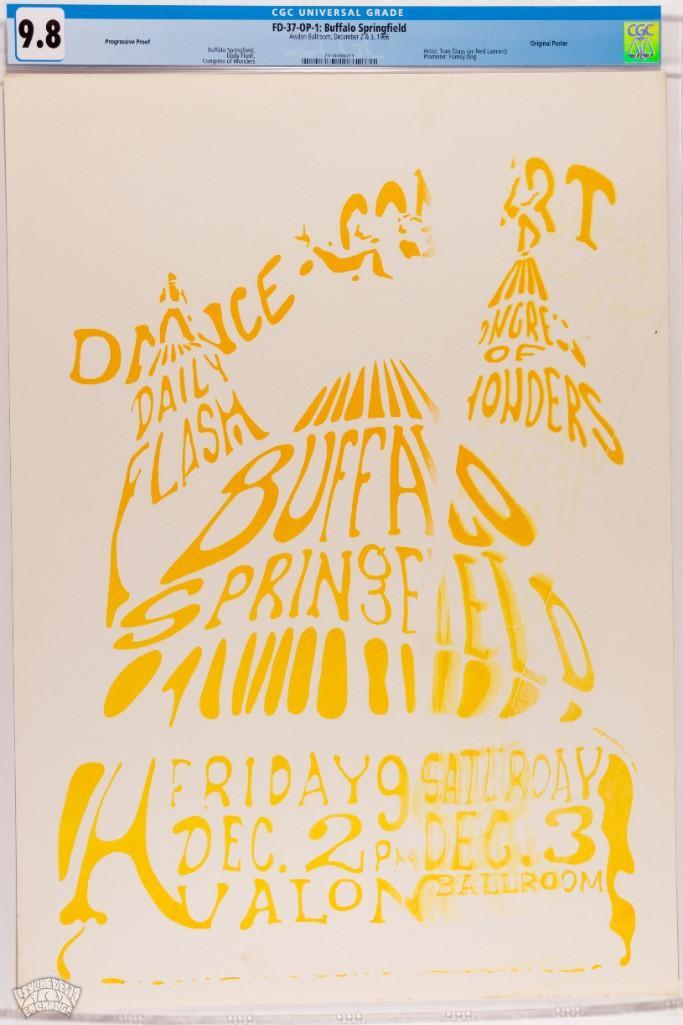 CGC UNIVERSAL GRADE
9.8
FD-37-OP-1: Buffalo Springfield
Avalon Ballroom, December 2 & 3, 1966
Progressive Proof
Buffalo Springfield,
Daily Flash,
Congress of Wonders
Artist: Tom Glass (as Ned Lamont)
Promoter: Family Dog
Original Poster
CGC
DANCE
DAILY
FLASH
OF
BUFFALO
SPRINGFIELD
FRIDAY 9 SATURDAY
DEC. 2 PM DEC. 3
AVALON BALLROOM
PSYCHEDELIC
ART
EXCHANGE